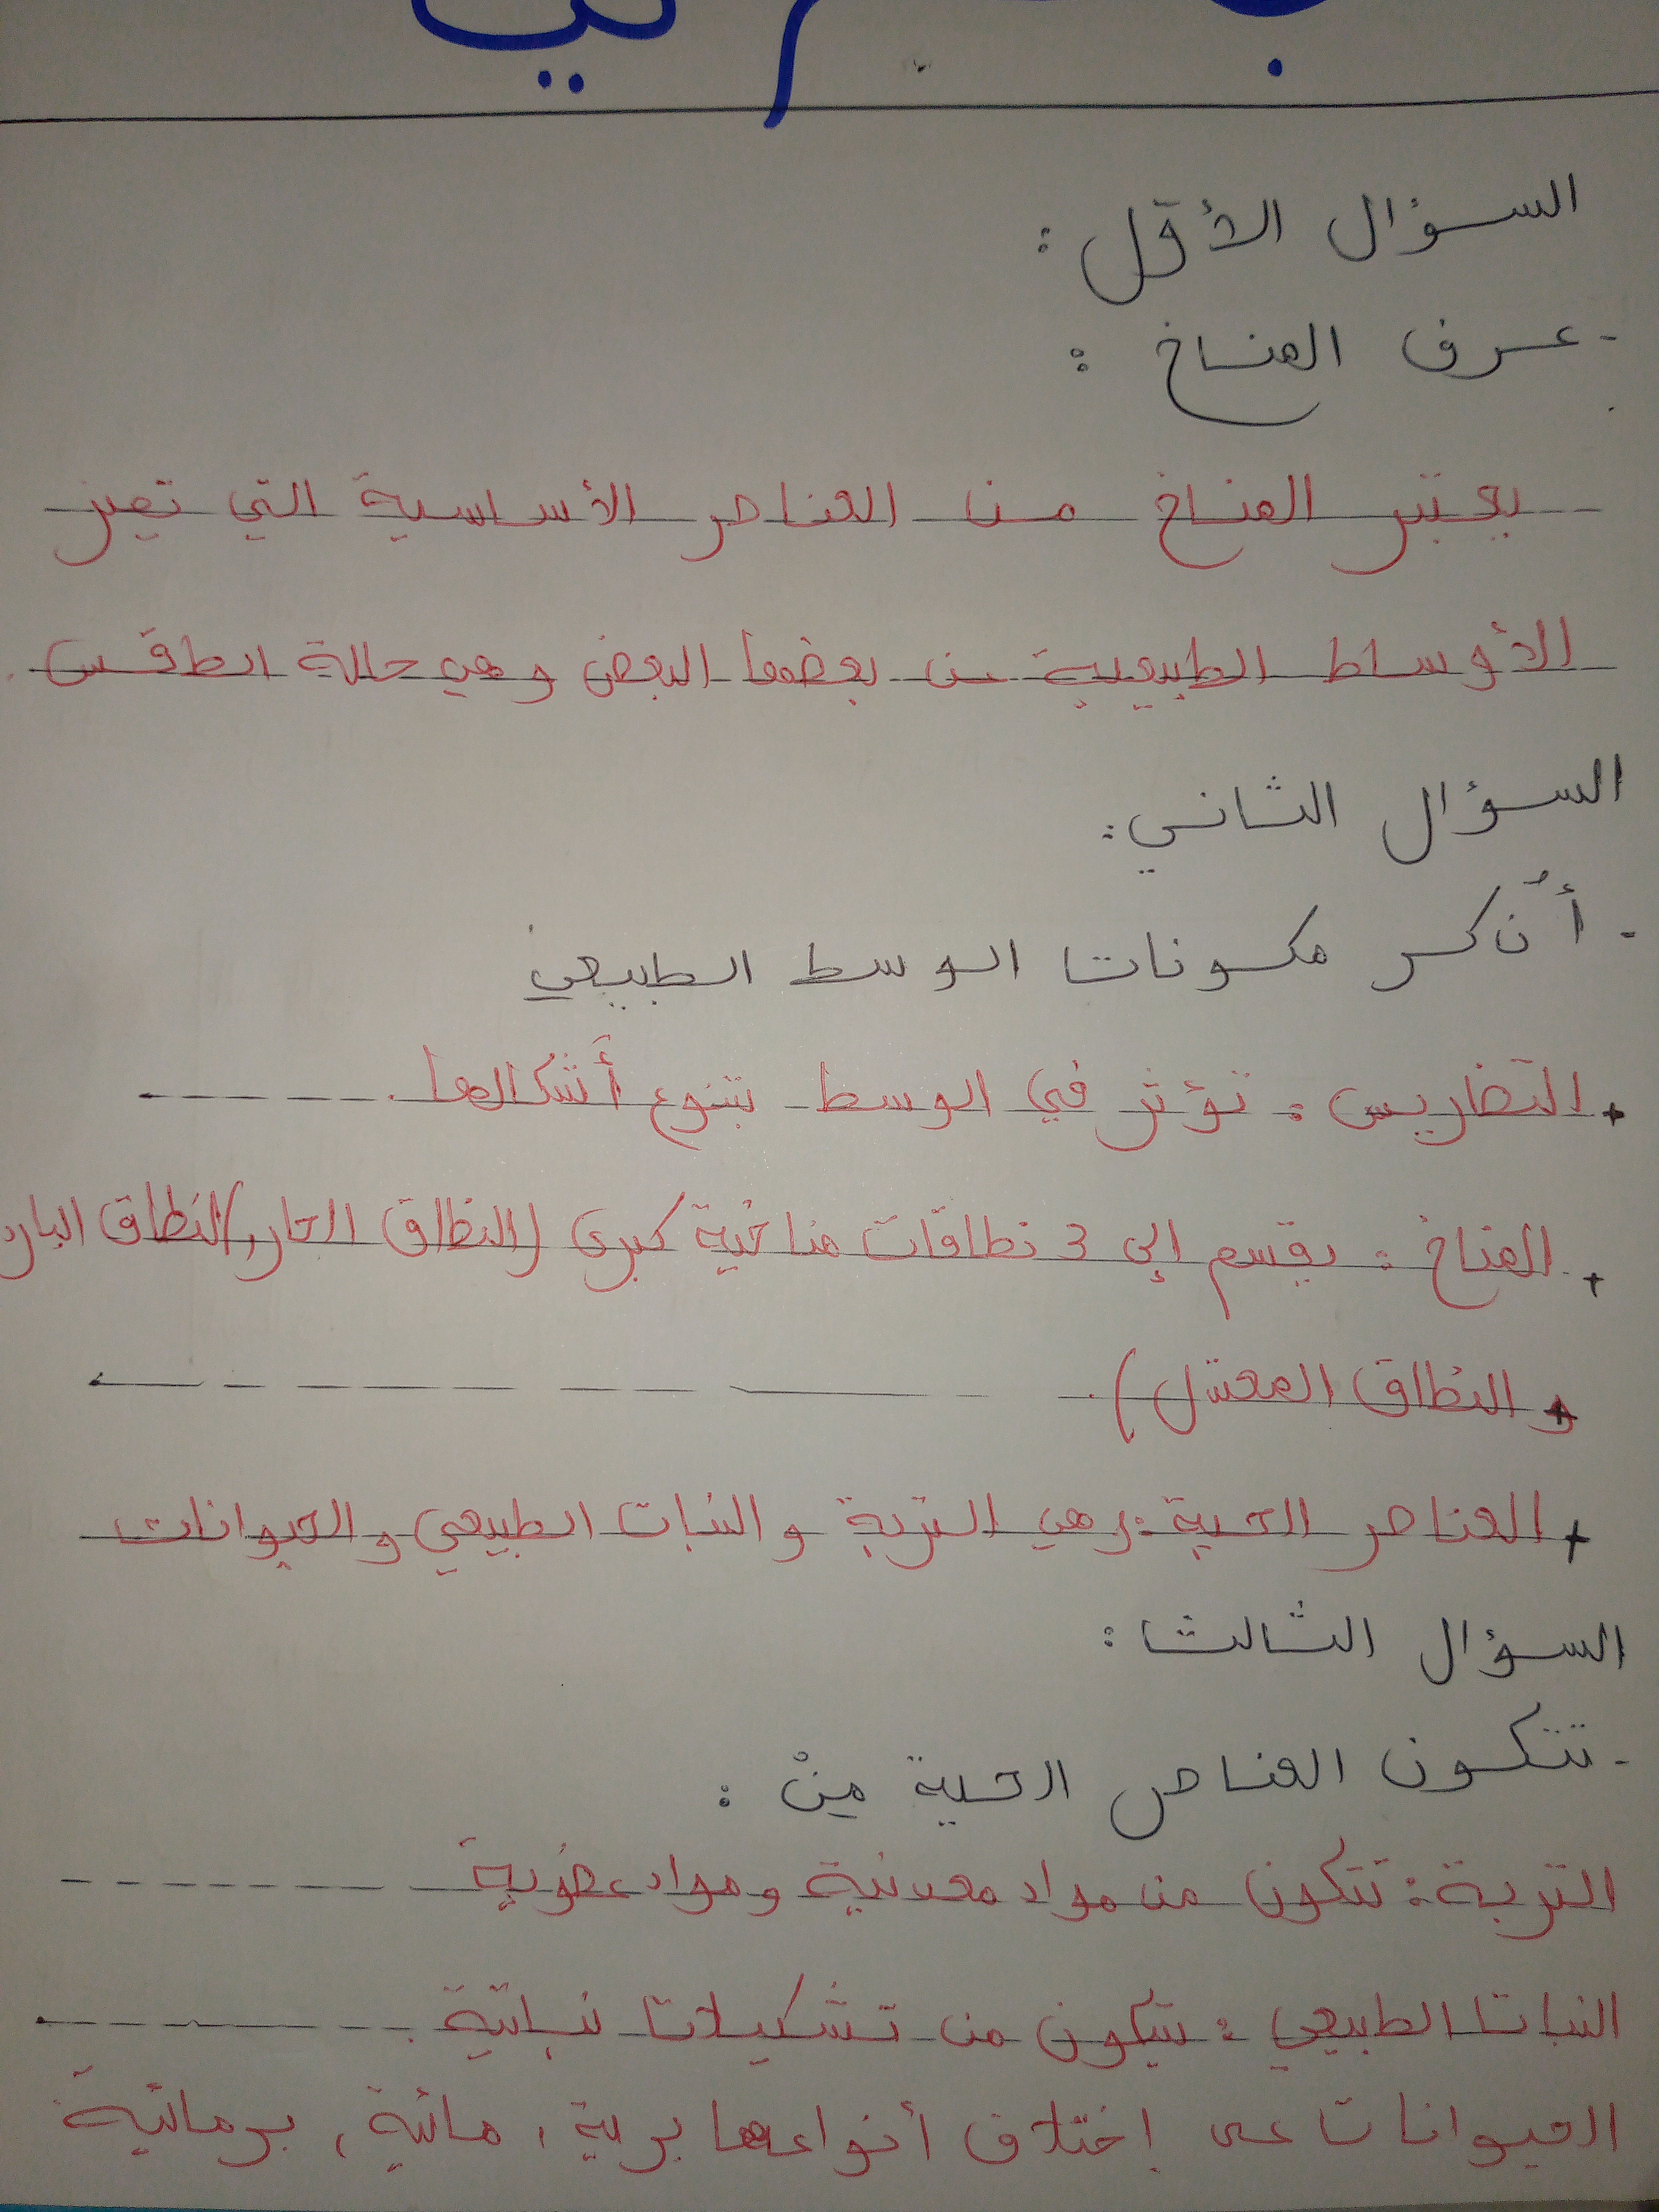 السؤال الأول :
- عرف المناخ :
يعتبر المناخ من العناصر الأساسية التي تميز
الأوساط الطبيعية عن بعضها البعض وهي حالة الطقس .
السؤال الثاني :
- أذكر مكونات الوسط الطبيعي
+ التضاريس : تؤثر في الوسط بتنوع أشكالها .
+ المناخ : يقسم إلى 3 نطاقات مناخية كبرى (النطاق الحار، النطاق البارد
و النطاق المعتدل).
+ العناصر الحية : وهي التربة و النبات الطبيعي و الحيوانات
السؤال الثالث :
- تتكون العناصر الحية مِنْ :
التربة : تتكون من مواد معدنية و مواد عضوية
النبات الطبيعي : يتكون من تشكيلات نباتية .
الحيوانات على إختلاف أنواعها برية ، مائية ، برمائية